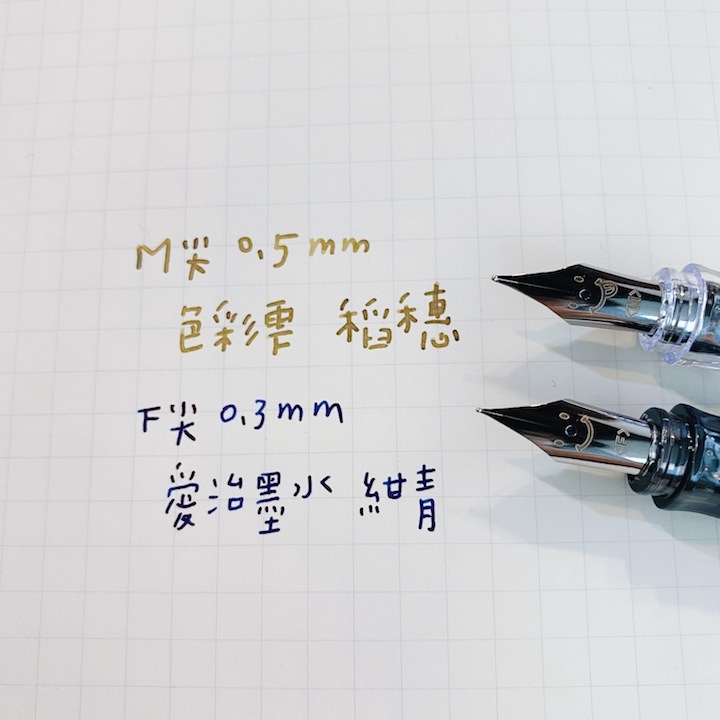 M尖 0.5mm
色彩雫 稻穗
F尖 0.3mm
愛治墨水 紺青
<M>
<F>